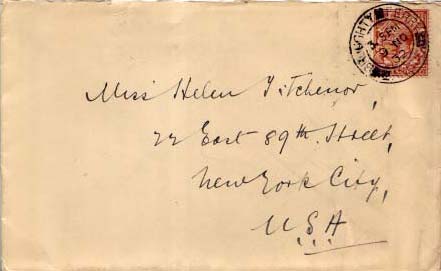 Miss Helen Fitchenor,
22 East 89th Street,
New York City,
USA